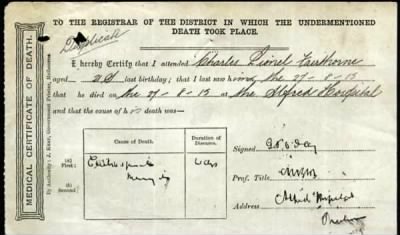 TO THE REGISTRAR OF THE DISTRICT IN WHICH THE UNDERMENTIONED
DEATH TOOK PLACE.
Duplicate
I hereby Certify that I attended Charles Lionel Fairthorne
aged 28 last birthday; that I last saw him the 27-8-15
that he died on the 27-8-15 at the Alfred Hospital
and that the cause of his death was—
MEDICAL CERTIFICATE OF DEATH.
By Authority: J. Kemp, Government Printer, Melbourne.
Cause of Death.
Duration of Diseases.
(a) First:
Cerebrospinal
Meningitis
(b) Second:
Signed
Prof. Title MBBS
Address Alfred Hospital
Prahran